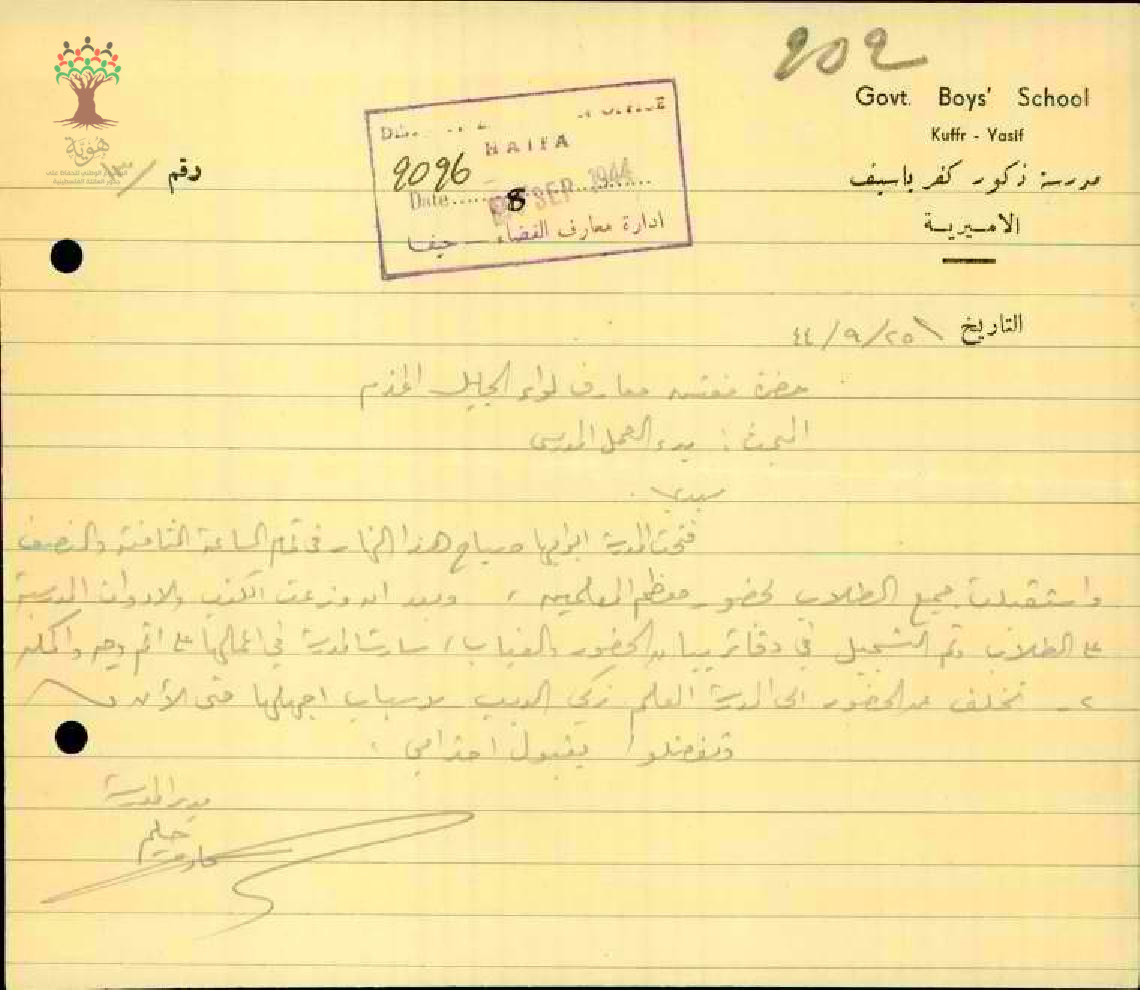 902
Govt. Boys' School
Kuffr - Yasif
مدرسة ذكور كفر ياسيف
الاميرية
OFFICE
HAIFA
9096
Date 8 SEP 1944
ادارة معارف القضاء — حيفا
هُوِيَّة
رقم /١٣
التاريخ ٤٤/٩/٢٥
حضرة مفتش معارف لواء الجليل المحترم
المبحث : بدء العمل المدرسي
سيدي .
فتحت المدرسة ابوابها صباح هذا النهار في تمام الساعة الثامنة والنصف
واستقبلت جميع الطلاب بحضور معظم المعلمين ، وبعد ان وزعت الكتب والادوات المدرسية
على الطلاب وتم التسجيل في دفاتر بيان الحضور والغياب ، سارت المدرسة في اعمالها على اتم وجه واكمله
٢ـ تخلف عن الحضور الى المدرسة المعلم زكي الديب لاسباب اجهلها حتى الآن
وتفضلوا بقبول احترامي .
مدير المدرسة